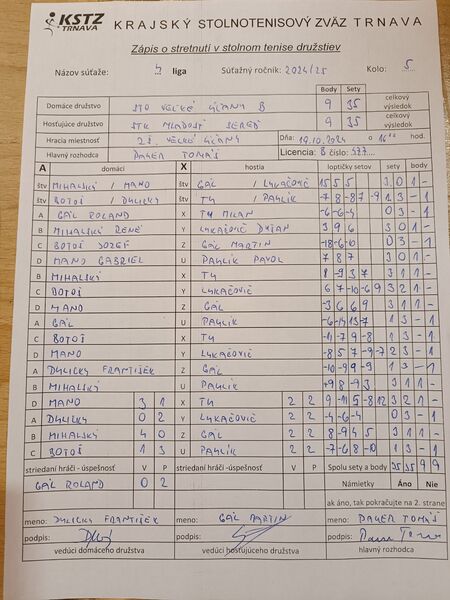 KSTZ TRNAVA KRAJSKÝ STOLNOTENISOVÝ ZVÄZ TRNAVA
Zápis o stretnutí v stolnom tenise družstiev
Názov súťaže: liga Súťažný ročník: 2024/25 Kolo: 5
Body Sety
Domáce družstvo STO VEĽKÉ ÚĽANY B 9 35 celkový výsledok
Hosťujúce družstvo STK MLADOSŤ SEREĎ 9 35 celkový výsledok
Hracia miestnosť ZŠ VEĽKÉ ÚĽANY Dňa: 19.10.2024 o 16 00 hod.
Hlavný rozhodca PAXER TOMÁŠ Licencia: B číslo: 527
A domáci X hostia loptičky setov sety body
štv MIHALSKÝ / MANO štv GÁL / LUKAČOVIČ 15 5 5 3 0 1 -
štv BOTOŠ / DULICKÝ štv TU / PAVLÍK -7 8 -8 7 -9 1 3 - 1
A GÁL ROLAND X TU MILAN -6 -6 -4 0 3 - 1
B MIHALSKÝ RENÉ Y LUKAČOVIČ DUŠAN 3 9 6 3 0 1 -
C BOTOŠ JOZEF Z GÁL MARTIN -18 -6 -10 0 3 - 1
D MANO GABRIEL U PAVLÍK PAVOL 7 8 7 3 0 1 -
B MIHALSKÝ X TU 8 -9 3 7 3 1 1 -
C BOTOŠ Y LUKAČOVIČ 6 7 -10 -6 9 3 2 1 -
D MANO Z GÁL -3 6 6 9 3 1 1 -
A GÁL U PAVLÍK 1 3 - 1
C BOTOŠ X TU -11 -7 9 -8 1 3 - 1
D MANO Y LUKAČOVIČ -8 5 7 -9 -7 2 3 - 1
A DULICKÝ FRANTIŠEK Z GÁL -10 -9 9 -9 1 3 - 1
B MIHALSKÝ U PAVLÍK 9 8 -9 3 3 1 1 -
D MANO 3 1 X TU 2 2 9 -11 5 -8 12 3 2 1 -
A DULICKÝ 0 2 Y LUKAČOVIČ 2 2 -4 -6 -4 0 3 - 1
B MIHALSKÝ 4 0 Z GÁL 2 2 8 -9 4 5 3 1 1 -
C BOTOŠ 1 3 U PAVLÍK 2 2 -7 -6 8 -10 1 3 - 1
striedaní hráči - úspešnosť V P striedaní hráči -úspešnosť V P Spolu sety a body 35 35 9 9
GÁL ROLAND 0 2 Námietky Áno Nie
ak áno, tak pokračujte na 2. strane
meno: DULICKÝ FRANTIŠEK meno: GÁL MARTIN meno: PAXER TOMÁŠ
podpis: podpis: podpis:
vedúci domáceho družstva vedúci hosťujúceho družstva hlavný rozhodca